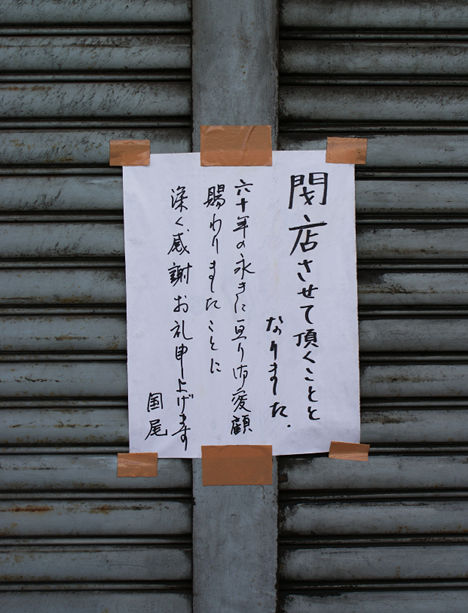 閉店させて頂くことと
なりました.
六十年の永きに亘り御愛顧
賜わりましたことに
深く感謝お礼申上げます
国尾